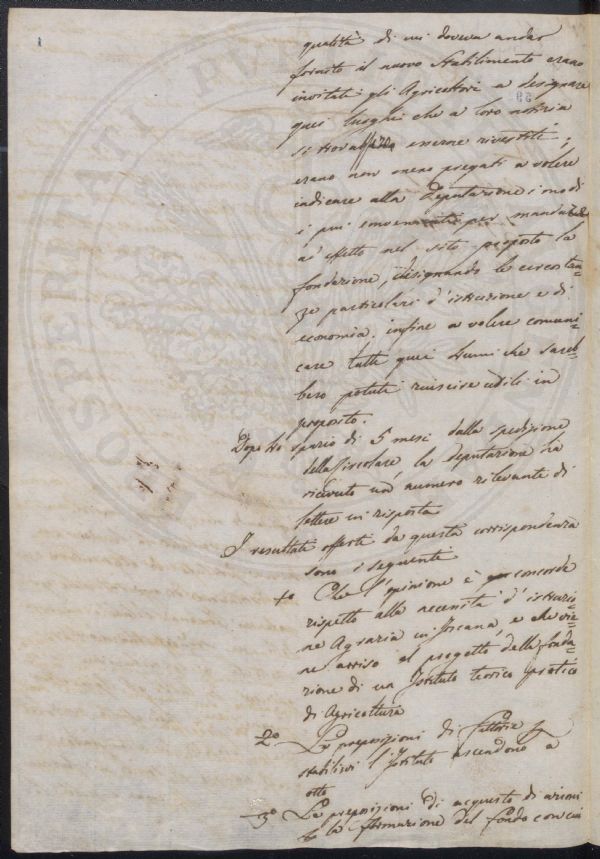 qualità di cui doveva andar
fornito il nuovo Stabilimento erano
invitati gli Agricoltori a designare
quei luoghi che a loro notizia
si trovassero esserne rivestiti;
erano non meno pregati a volere
indicare alla Deputazione i modi
i più convenienti per mandare
ad effetto nel sito proposto la
fondazione, disegnando le circostan-
ze particolari d'istruzione e di
economia. infine a volere comuni-
care tutti quei lumi che sareb-
bero potuti riuscire utili in
proposito.
Dopo lo spazio di 5 mesi dalla spedizione
della Circolare, la deputazione ha
ricevuto un numero rilevante di
lettere in risposta
I resultati offerti da questa corrispondenza
sono i seguenti
1o Che l'opinione è concorde
rispetto alla necessità d'istruzio-
ne Agraria in Toscana, e che vie-
ne arriso al progetto della fonda-
zione di un Istituto teorico pratico
di Agricoltura
2o Le preposizioni di Fattorie p
stabilirvi l'Istituto ascendono a
otto
3o Le preposizioni di acquisto di azioni
la formazione del fondo con cui
PROSPERITATI